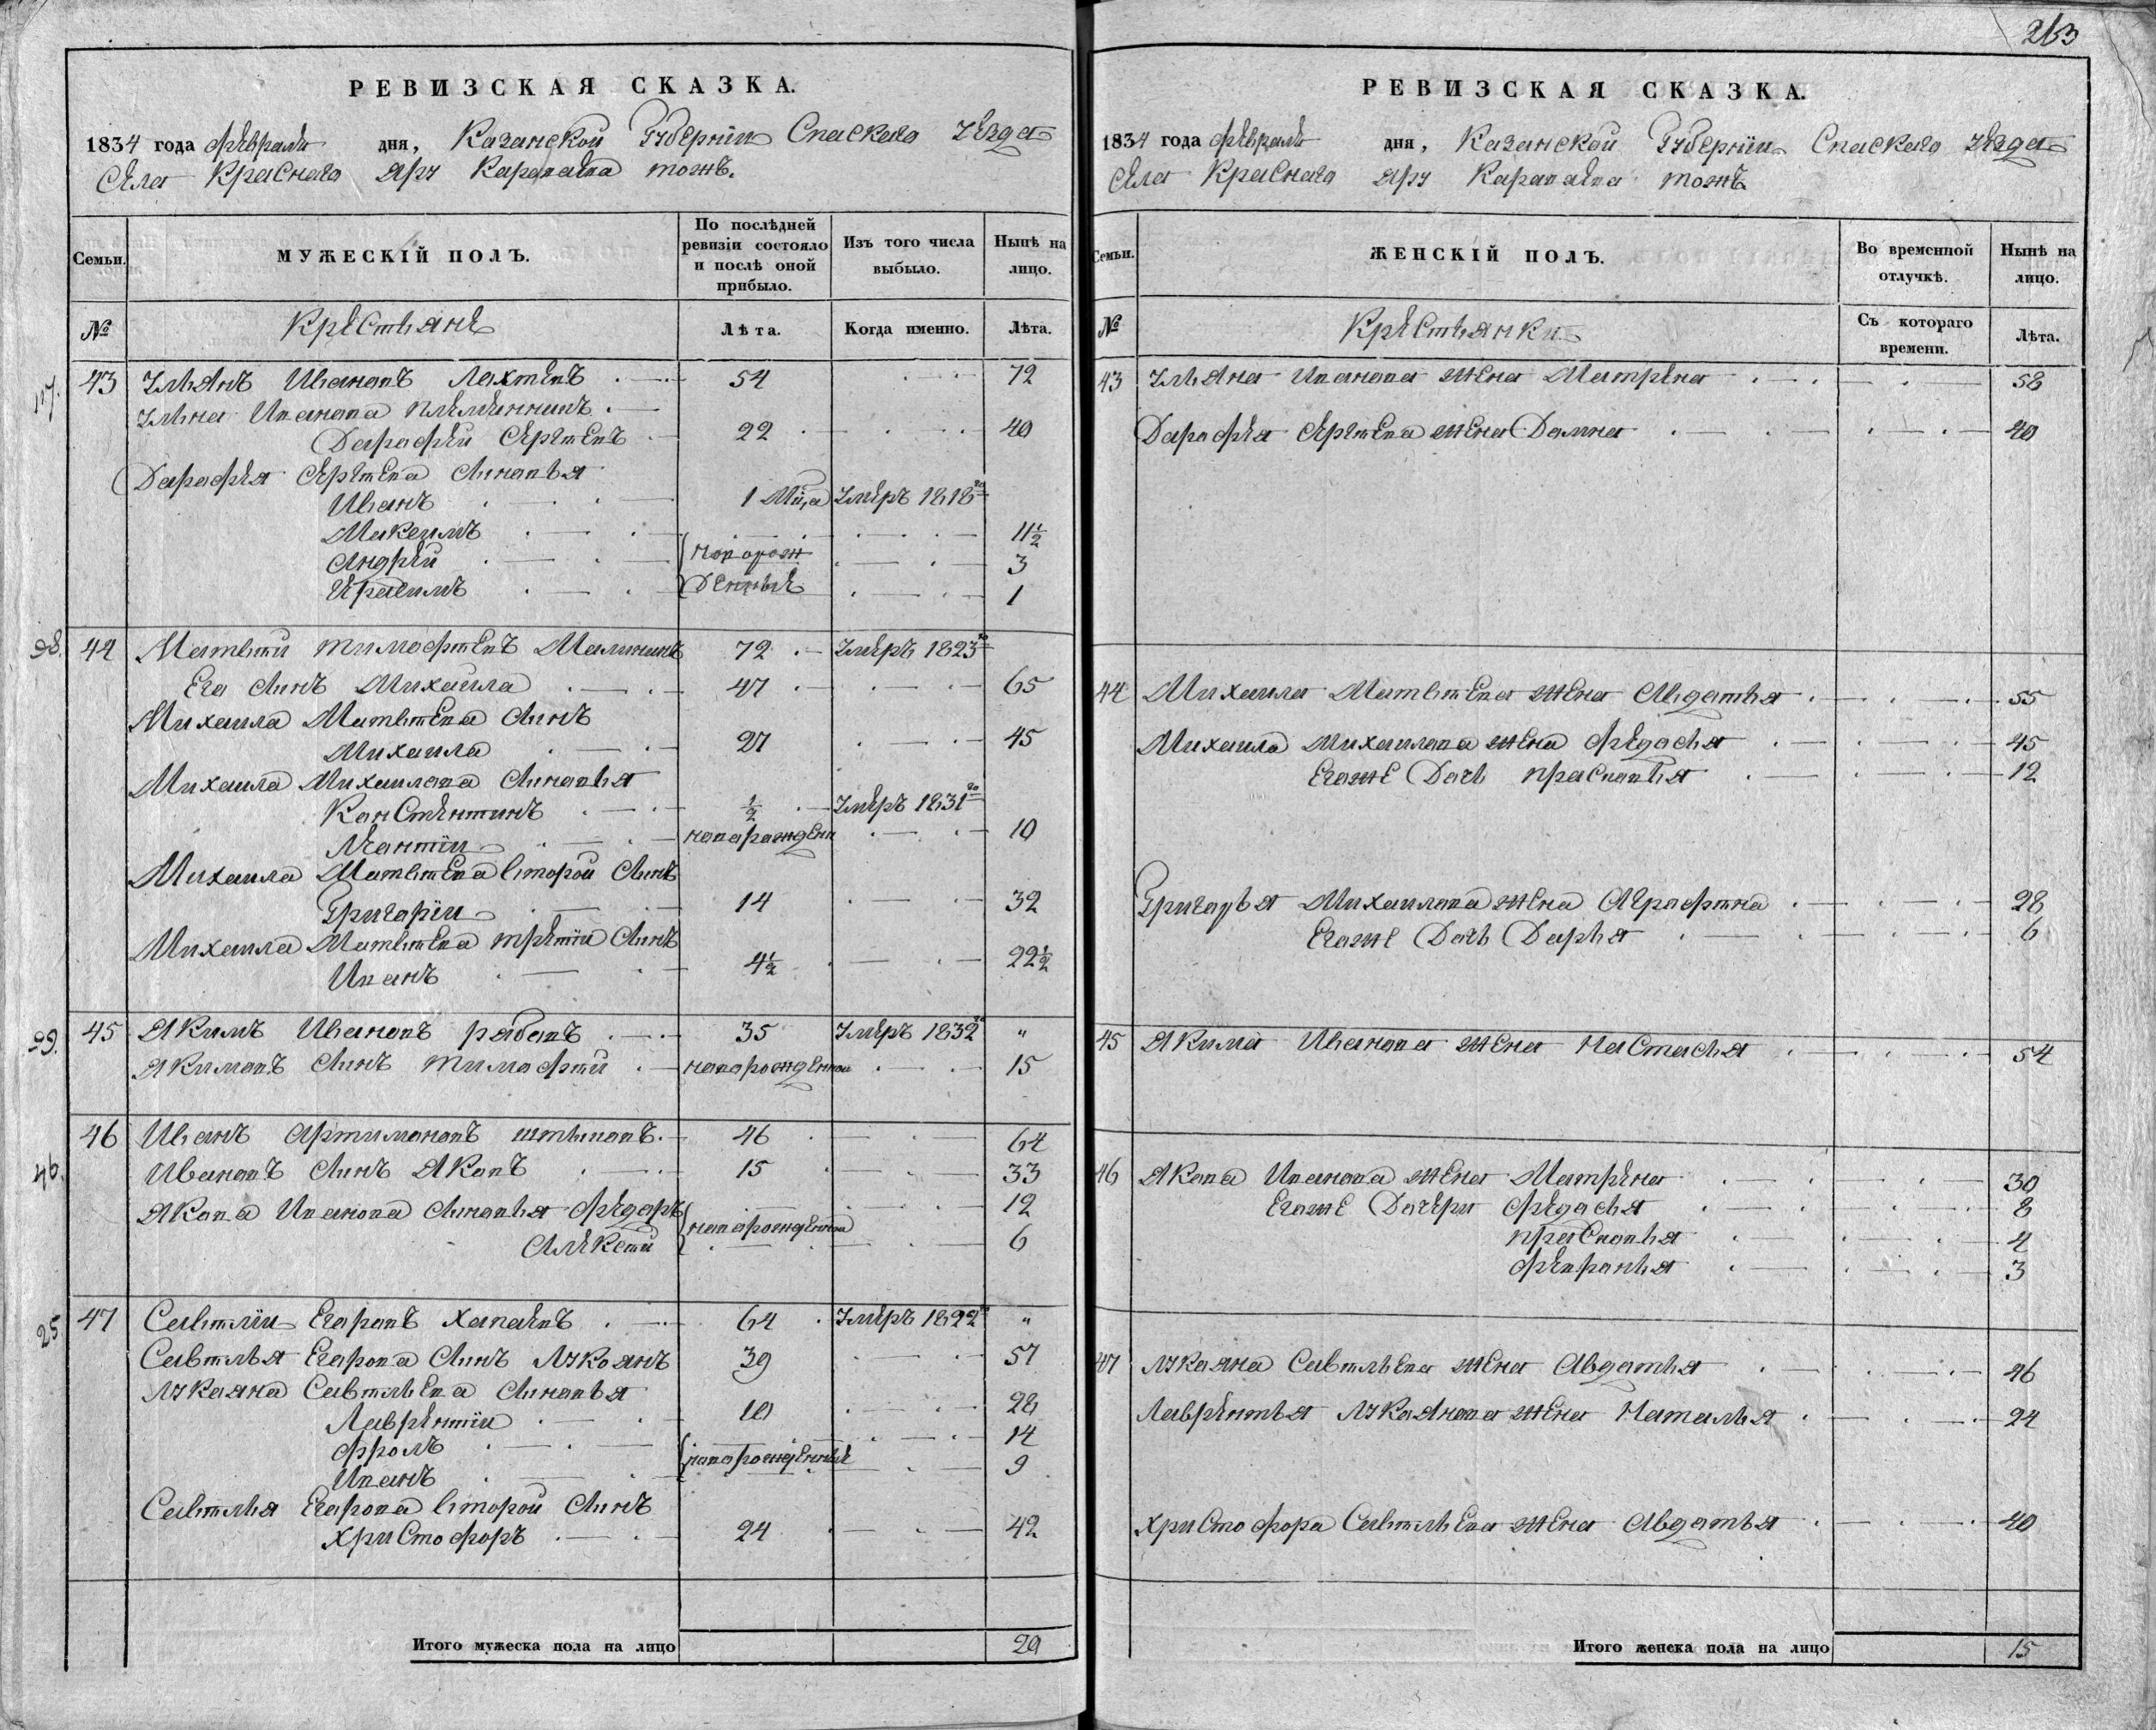 РЕВИЗСКАЯ СКАЗКА.
1834 года февраля дня, Казанской Губернiи Спаскаго уезда
Села Краснаго яру Карапаева тожъ.
Семьи.
МУЖЕСКІЙ ПОЛЪ.
По послѣдней ревизіи состояло и послѣ оной прибыло.
Изъ того числа выбыло.
Нынѣ на лицо.
№
Крестьяне
Лѣта.
Когда именно.
Лѣта.
117.
43 Ульянъ Ивановъ 54 72
Ульяна Иванова племянникъ
Дарофей Сергеевъ 22 40
Дарофея Сергеева Синовья
Иванъ 1 Умеръ 1818го
Микеимъ 11½
Андрей новорож 3
Ерасимъ денныя 1
98.
44 Матвѣй тимофѣевъ Малининъ 72 Умеръ 1823го
Его Синъ Михаила 47 65
Михаила Матвѣева Синъ
Михаила 27 45
Михаила Михаилова Синовья
Канстентинъ ½ Умеръ 1831го
Леантiй новорожден 10
Михаила Матвѣева второй Синъ
Григорiи 14 32
Михаила Матвѣева третiи Синъ
Иванъ 4½ 22½
99.
45 Якимъ Ивановъ рабовъ 35 Умеръ 1832го "
Якимовъ Синъ Тимофѣй новорожденнои 15
46.
46 Иванъ Артимоновъ 46 64
Ивановъ Синъ Яковъ 15 33
Якова Иванова Синовья Федоръ новорожденныя 12
Алексѣй 6
25.
47 Савѣлiи Егоровъ 64 Умеръ 1822го "
Савѣлья Егорова Синъ Лукоянъ 39 57
Лукояна Савѣльева Синовья
Лаврентiи 10 28
Фролъ 14
новорожденныя
Иванъ 9
Савѣлья Егорова второй Синъ
Христофоръ 24 42
Итого мужеска пола на лицо 20
263
РЕВИЗСКАЯ СКАЗКА.
1834 года февраля дня, Казанской Губернiи Спаскаго уезда
Села Краснаго яру Карапаева тожъ
Семьи.
ЖЕНСКІЙ ПОЛЪ.
Во временной отлучкѣ.
Нынѣ на лицо.
№
Крестьянки
Съ котораго времени.
Лѣта.
43 Ульяна Иванова жена Матрена 58
Дарофея Сергеева жена Домна 40
44 Михаила Матвѣева жена Авдотья 55
Михаила Михаилова жена Федосья 45
Егоже Дочь Прасковья 12
Григорья Михаилова жена Аграфѣна 28
Егоже Дочь Дарья 6
45 Якима Иванова жена Настасья 54
46 Якова Иванова жена Матрена 30
Егоже Дочери Федосья 8
Прасковья 4
Февронья 3
47 Лукояна Савѣльева жена Авдотья 46
Лаврентья Лукоянова жена Наталья 24
Христофора Савѣльева жена Авдотья 40
Итого женска пола на лицо 15